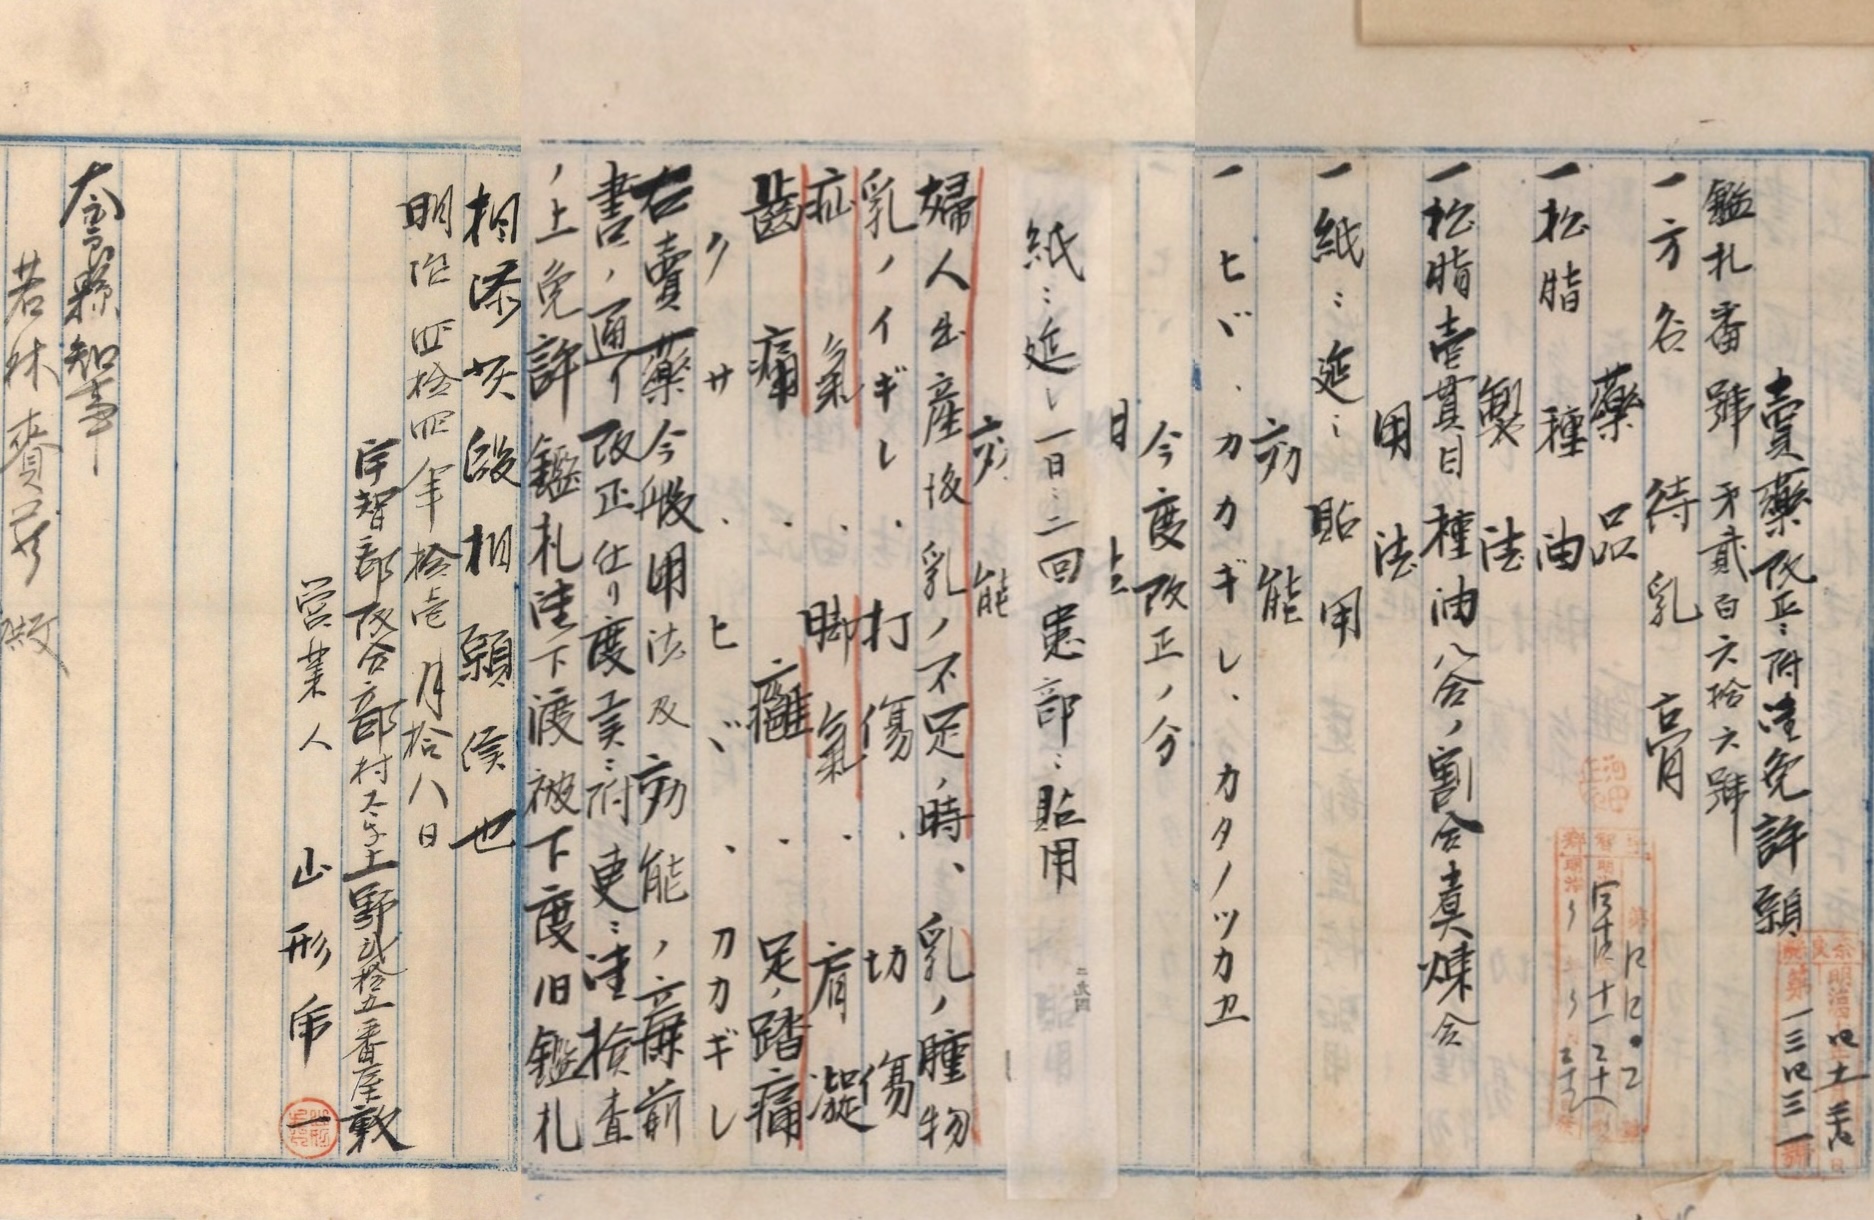 賣藥改正ニ附御免許願
鑑札番號 第貳百六拾六號
一方名 待乳膏
藥品
一松脂 種油
製法
一松脂壹貫目種油八合ノ割合煮煉合
用法
一紙ニ延ニ貼用
効能
一ヒヾ、カカギレ、カタノツカヱ
今度改正ノ分
紙ニ延シ一日ニ二回患部ニ貼用
効能
婦人出産後乳ノ不足ノ時、乳ノ腫物
乳ノイギレ、打傷、切傷
症氣、脚氣、肩凝
齒痛、癰、足ノ踏痛
クサ、ヒヾ、カカギレ
右賣藥今般用法及効能ノ廉前
書ノ通リ改正仕リ度候ニ附更ニ御檢査
ノ上免許鑑札御下渡被下度旧鑑札
相添此段相願候也
明治四拾四年拾壱月拾八日
宇智郡阪合部村大字上野貳拾五番屋敷
營業人 山形帝一
奈良縣知事
若林賚蔵殿